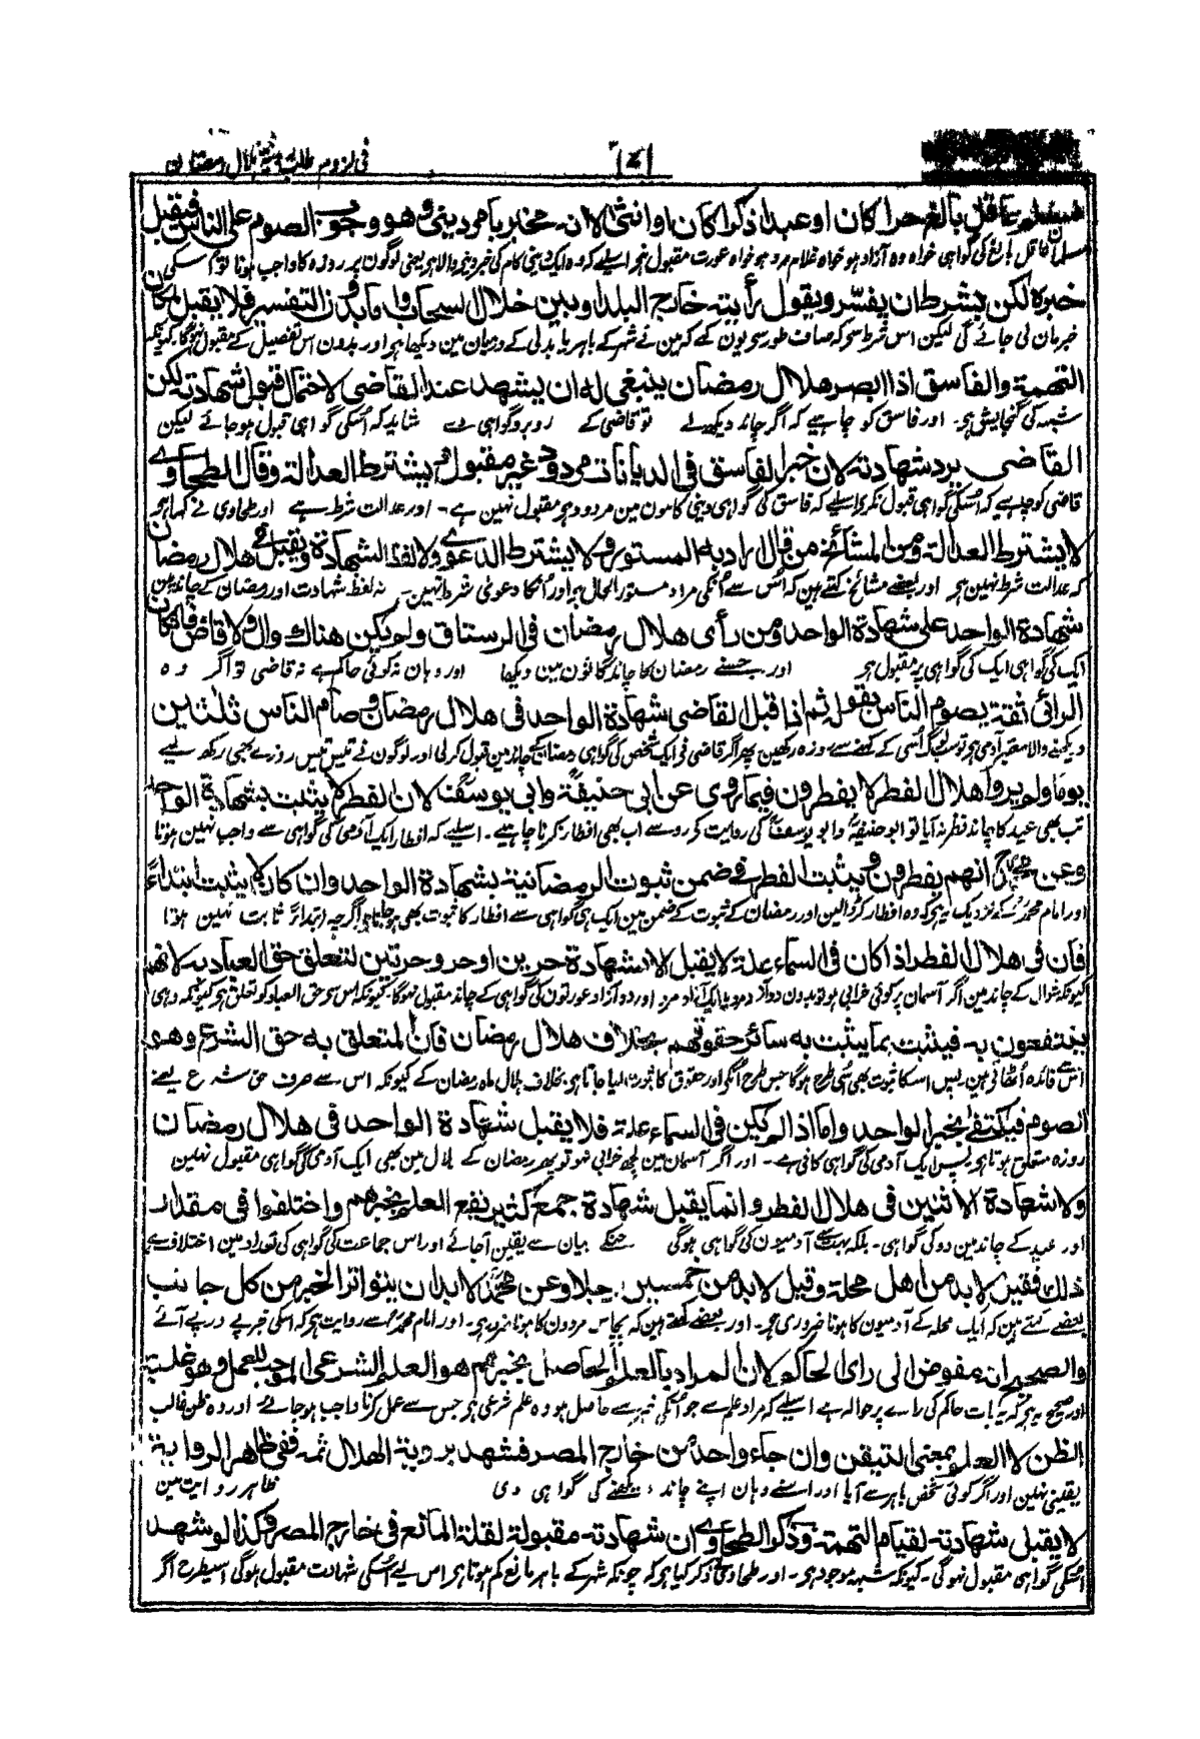 فی لزوم طلب رؤیة ہلال رمضان
۱۷۱
مسلم عاقل بالغ حرا كان او عبدا ذكرا كان او انثى لانه مخبر بامر ديني وهو وجوب الصوم على الناس فيقبل
مسلمان عاقل بالغ کی گواہی خواہ وہ آزاد ہو خواہ غلام مرد ہو خواہ عورت مقبول ہی اسلیے کہ وہ ایک دینی کام کی خبر دینے والا ہی یعنی لوگون پر روزہ کا واجب ہونا تو اسکی
خبره لكن يشترط ان يفسر ويقول رأيته خارج البلد او بين خلال السحاب واما بدون التفسير فلا يقبل لمكان
خبر مان لی جائے گی لیکن اس شرط سے کہ صاف طور سے یون کہے کہ مین نے شہر کے باہر یا بدلی کے درمیان مین دیکھا ہی اور بدون اس تفصیل کے مقبول نہوگا کیونکہ
التهمة والفاسق اذا ابصر هلال رمضان ينبغي له ان يشهد عند القاضي لاحتمال قبول شهادته لكن
شبہہ کی گنجایش ہی۔ اور فاسق کو چاہیے کہ اگر چاند دیکھے تو قاضی کے روبرو گواہی دے شاید کہ اسکی گواہی قبول ہو جائے لیکن
القاضي يرد شهادته لان خبر الفاسق في الديانات مردود غير مقبول ويشترط العدالة وقال الطحاوي
قاضی کو چاہیے کہ اسکی گواہی قبول نکرے اسلیے کہ فاسق کی گواہی دینی کامون مین مردود ہی مقبول نہین ہے۔ اور عدالت شرط ہے اور طحاوی نے کہا ہی
لا يشترط العدالة ومن المشائخ من قال اراد به المستور ولا يشترط الدعوى ولا لفظ الشهادة ويقبل في هلال رمضان
کہ عدالت شرط نہین ہی اور بعضے مشائخ کہتے ہین کہ اس سے انکی مراد مستور الحال ہی اور انکا دعوی شرط نہین۔ نہ لفظ شہادت اور رمضان کے چاند مین
شهادة الواحد على شهادة الواحد ومن رأى هلال رمضان في الرستاق ولم يكن هناك وال ولا قاض فان كان
ایک کی گواہی ایک کی گواہی پر مقبول ہی اور جسنے رمضان کا چاند گانون مین دیکھا اور وہان نہ کوئی حاکم ہے نہ قاضی تو اگر وہ
الرائي ثقة يصوم الناس بقوله ثم اذا قبل القاضي شهادة الواحد في هلال رمضان وصام الناس ثلثين
دیکھنے والا معتبر آدمی ہی تو سب لوگ اسی کے کہنے سے روزہ رکھین پھر اگر قاضی نے ایک شخص کی گواہی رمضان کے چاند مین قبول کر لی اور لوگون نے تیس تیس روزے بھی رکھ لیے
يوما ولم يروا هلال الفطر لا يفطرون فيما روي عن ابي حنيفة وابي يوسف لان الفطر لا يثبت بشهادة الواحد
تب بھی عید کا چاند نظر نہ آیا تو ابو حنیفہ و ابو یوسف کی روایت کی رو سے اب بھی افطار نکرنا چاہیے۔ اسلیے کہ افطار ایک آدمی کی گواہی سے واجب نہین ہوتا
وعن محمد انهم يفطرون ويثبت الفطر في ضمن ثبوت الرمضانية بشهادة الواحد وان كان لا يثبت ابتداءً
اور امام محمد کے نزدیک یہ ہی کہ وہ افطار کر ڈالین اور رمضان کے ثبوت کے ضمن مین ایک ہی گواہی سے افطار کا ثبوت بھی ہو جاتا ہی اگرچہ ابتداءً ثابت نہین ہوتا
فان في هلال الفطر اذا كان في السماء علة لا يقبل الا شهادة حرين او حر وحرتين لتعلق حق العباد به لانهم
کیونکہ شوال کے چاند مین اگر آسمان پر کوئی خرابی ہو تو بدون دو آزاد مرد یا ایک آزاد مرد اور دو آزاد عورتون کی گواہی کے چاند مقبول نہوگا کیونکہ اس سے حق العباد کو تعلق ہی کیونکہ وہی
ينتفعون به فيثبت بما يثبت به سائر حقوقهم بخلاف هلال رمضان فان المتعلق به حق الشرع وهو
اس سے فائدہ اٹھاتے ہین پس اسکا ثبوت بھی اسی طرح ہوگا جس طرح انکی اور حقوق کا ثبوت لیا جاتا ہی بخلاف ہلال ماہ رمضان کے کیونکہ اس سے صرف حق شرع یعنے
الصوم فيكتفى بخبر الواحد واما اذا لم يكن في السماء علة فلا يقبل شهادة الواحد في هلال رمضان
روزہ متعلق ہوتا ہی پس ایک آدمی کی گواہی کافی ہے۔ اور اگر آسمان مین کچھ خرابی نہو تو پھر رمضان کے ہلال مین بھی ایک آدمی کی گواہی مقبول نہین
ولا شهادة الاثنين في هلال الفطر وانما يقبل شهادة جمع كثير يقع العلم بخبرهم واختلفوا في مقدار
اور عید کے چاند مین دو کی گواہی۔ بلکہ بہت سے آدمیون کی گواہی ہوگی جنکے بیان سے یقین آجائے اور اس جماعت کی گواہی کی تعداد مین اختلاف ہے
ذلك فقيل لا بد من اهل محلة وقيل لا بد من خمسين رجلا وعن محمد لا بد ان يتواتر الخبر من كل جانب
بعضے کہتے ہین کہ ایک محلہ کے آدمیون کا ہونا ضروری ہی۔ اور بعضے کہتے ہین کہ پچاس مردون کا ہونا ضرور ہی۔ اور امام محمد سے روایت ہی کہ اسکی خبر پے در پے آئے
والصحيح انه مفوض الى راى الحاكم لان المراد بالعلم الحاصل بخبرهم هو العلم الشرعي الموجب للعمل وهو غلبة
اور صحیح یہ ہی کہ یہ بات حاکم کی راے پر حوالہ ہے اسلیے کہ مراد علم سے جو انکی خبر سے حاصل ہو وہ علم شرعی ہی جس سے عمل کرنا واجب ہو جائے اور وہ ظن غالب
الظن لا العلم بمعنى التيقن وان جاء واحد من خارج المصر فشهد برؤية الهلال ثمه ففي ظاهر الرواية
یقینی نہین اور اگر کوئی شخص باہر سے آیا اور اسنے وہان اپنے چاند دیکھنے کی گواہی دی ظاہر روایت مین
لا يقبل شهادته لقيام التهمة وذكر الطحاوي ان شهادته مقبولة لقلة المانع في خارج المصر وكذا لو شهد
اسکی گواہی مقبول نہوگی۔ کیونکہ شبہہ موجود ہی۔ اور طحاوی نے ذکر کیا ہی کہ چونکہ شہر کے باہر مانع کم ہوتا ہی اس لیے اسکی شہادت مقبول ہوگی اسیطرح اگر